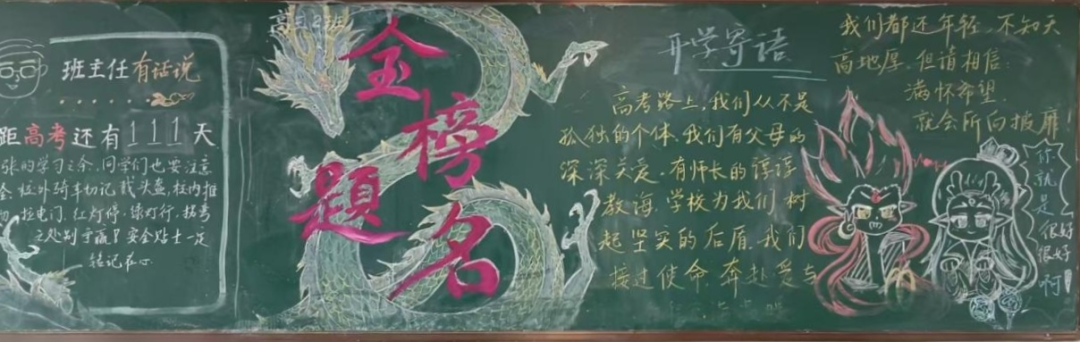 班主任有话说
距高考还有111天
张的学习之余,同学们也要注意
全 校外骑车切记戴头盔,校内推
拉电门,红灯停,绿灯行,拐弯
安全贴士一定
铭记在心
高 2班
金榜题名
开学寄语
高考路上,我们从不是
孤独的个体,我们有父母的
深深关爱,有师长的谆谆
教诲,学校为我们树
起坚实的后盾,我们
接过使命,奔赴爱与
我们都还年轻,不知天
高地厚,但请相信,
满怀希望,
就会所向披靡!
你就是
很好很好啊!